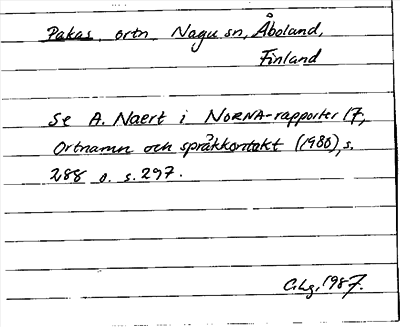 Pakas ortn Nagu sn, Åboland,
Finland
Se A. Naert i NORNA-rapporter 17,
Ortnamn och språkkontakt (1980), s.
288 o. s. 297.
1987.